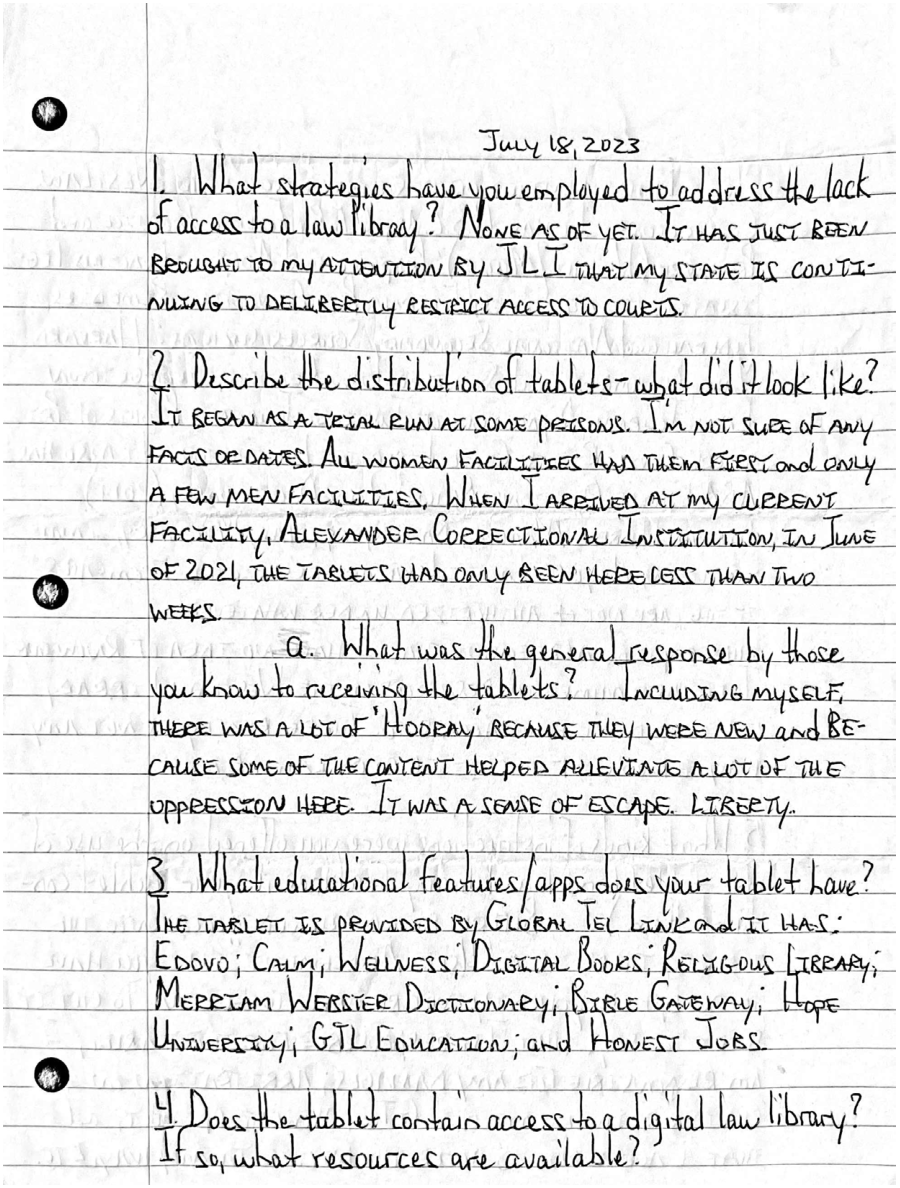 July 18, 2023
1. What strategies have you employed to address the lack
of access to a law library? NONE AS OF YET. IT HAS JUST BEEN
BROUGHT TO MY ATTENTION BY JLI THAT MY STATE IS CONTI-
NUING TO DELIBERTLY RESTRICT ACCESS TO COURTS.
2. Describe the distribution of tablets - what did it look like?
IT BEGAN AS A TRIAL RUN AT SOME PRISONS. I'M NOT SURE OF ANY
FACTS OR DATES. ALL WOMEN FACILITIES HAD THEM FIRST and ONLY
A FEW MEN FACILITIES. WHEN I ARRIVED AT MY CURRENT
FACILITY, ALEXANDER CORRECTIONAL INSTITUTION, IN JUNE
OF 2021, THE TABLETS HAD ONLY BEEN HERE LESS THAN TWO
WEEKS.
a. What was the general response by those
you know to receiving the tablets? INCLUDING MYSELF,
THERE WAS A LOT OF 'HOORAY' BECAUSE THEY WERE NEW and BE-
CAUSE SOME OF THE CONTENT HELPED ALLEVIATE A LOT OF THE
OPPRESSION HERE. IT WAS A SENSE OF ESCAPE. LIBERTY.
3. What educational features/apps does your tablet have?
THE TABLET IS PROVIDED BY GLOBAL TEL LINK and IT HAS:
EDOVO; CALM; WELLNESS; DIGITAL BOOKS; RELIGOUS LIBRARY;
MERRIAM WEBSTER DICTIONARY; BIBLE GATEWAY; HOPE
UNIVERSITY; GTL EDUCATION; and HONEST JOBS.
4. Does the tablet contain access to a digital law library?
If so, what resources are available?